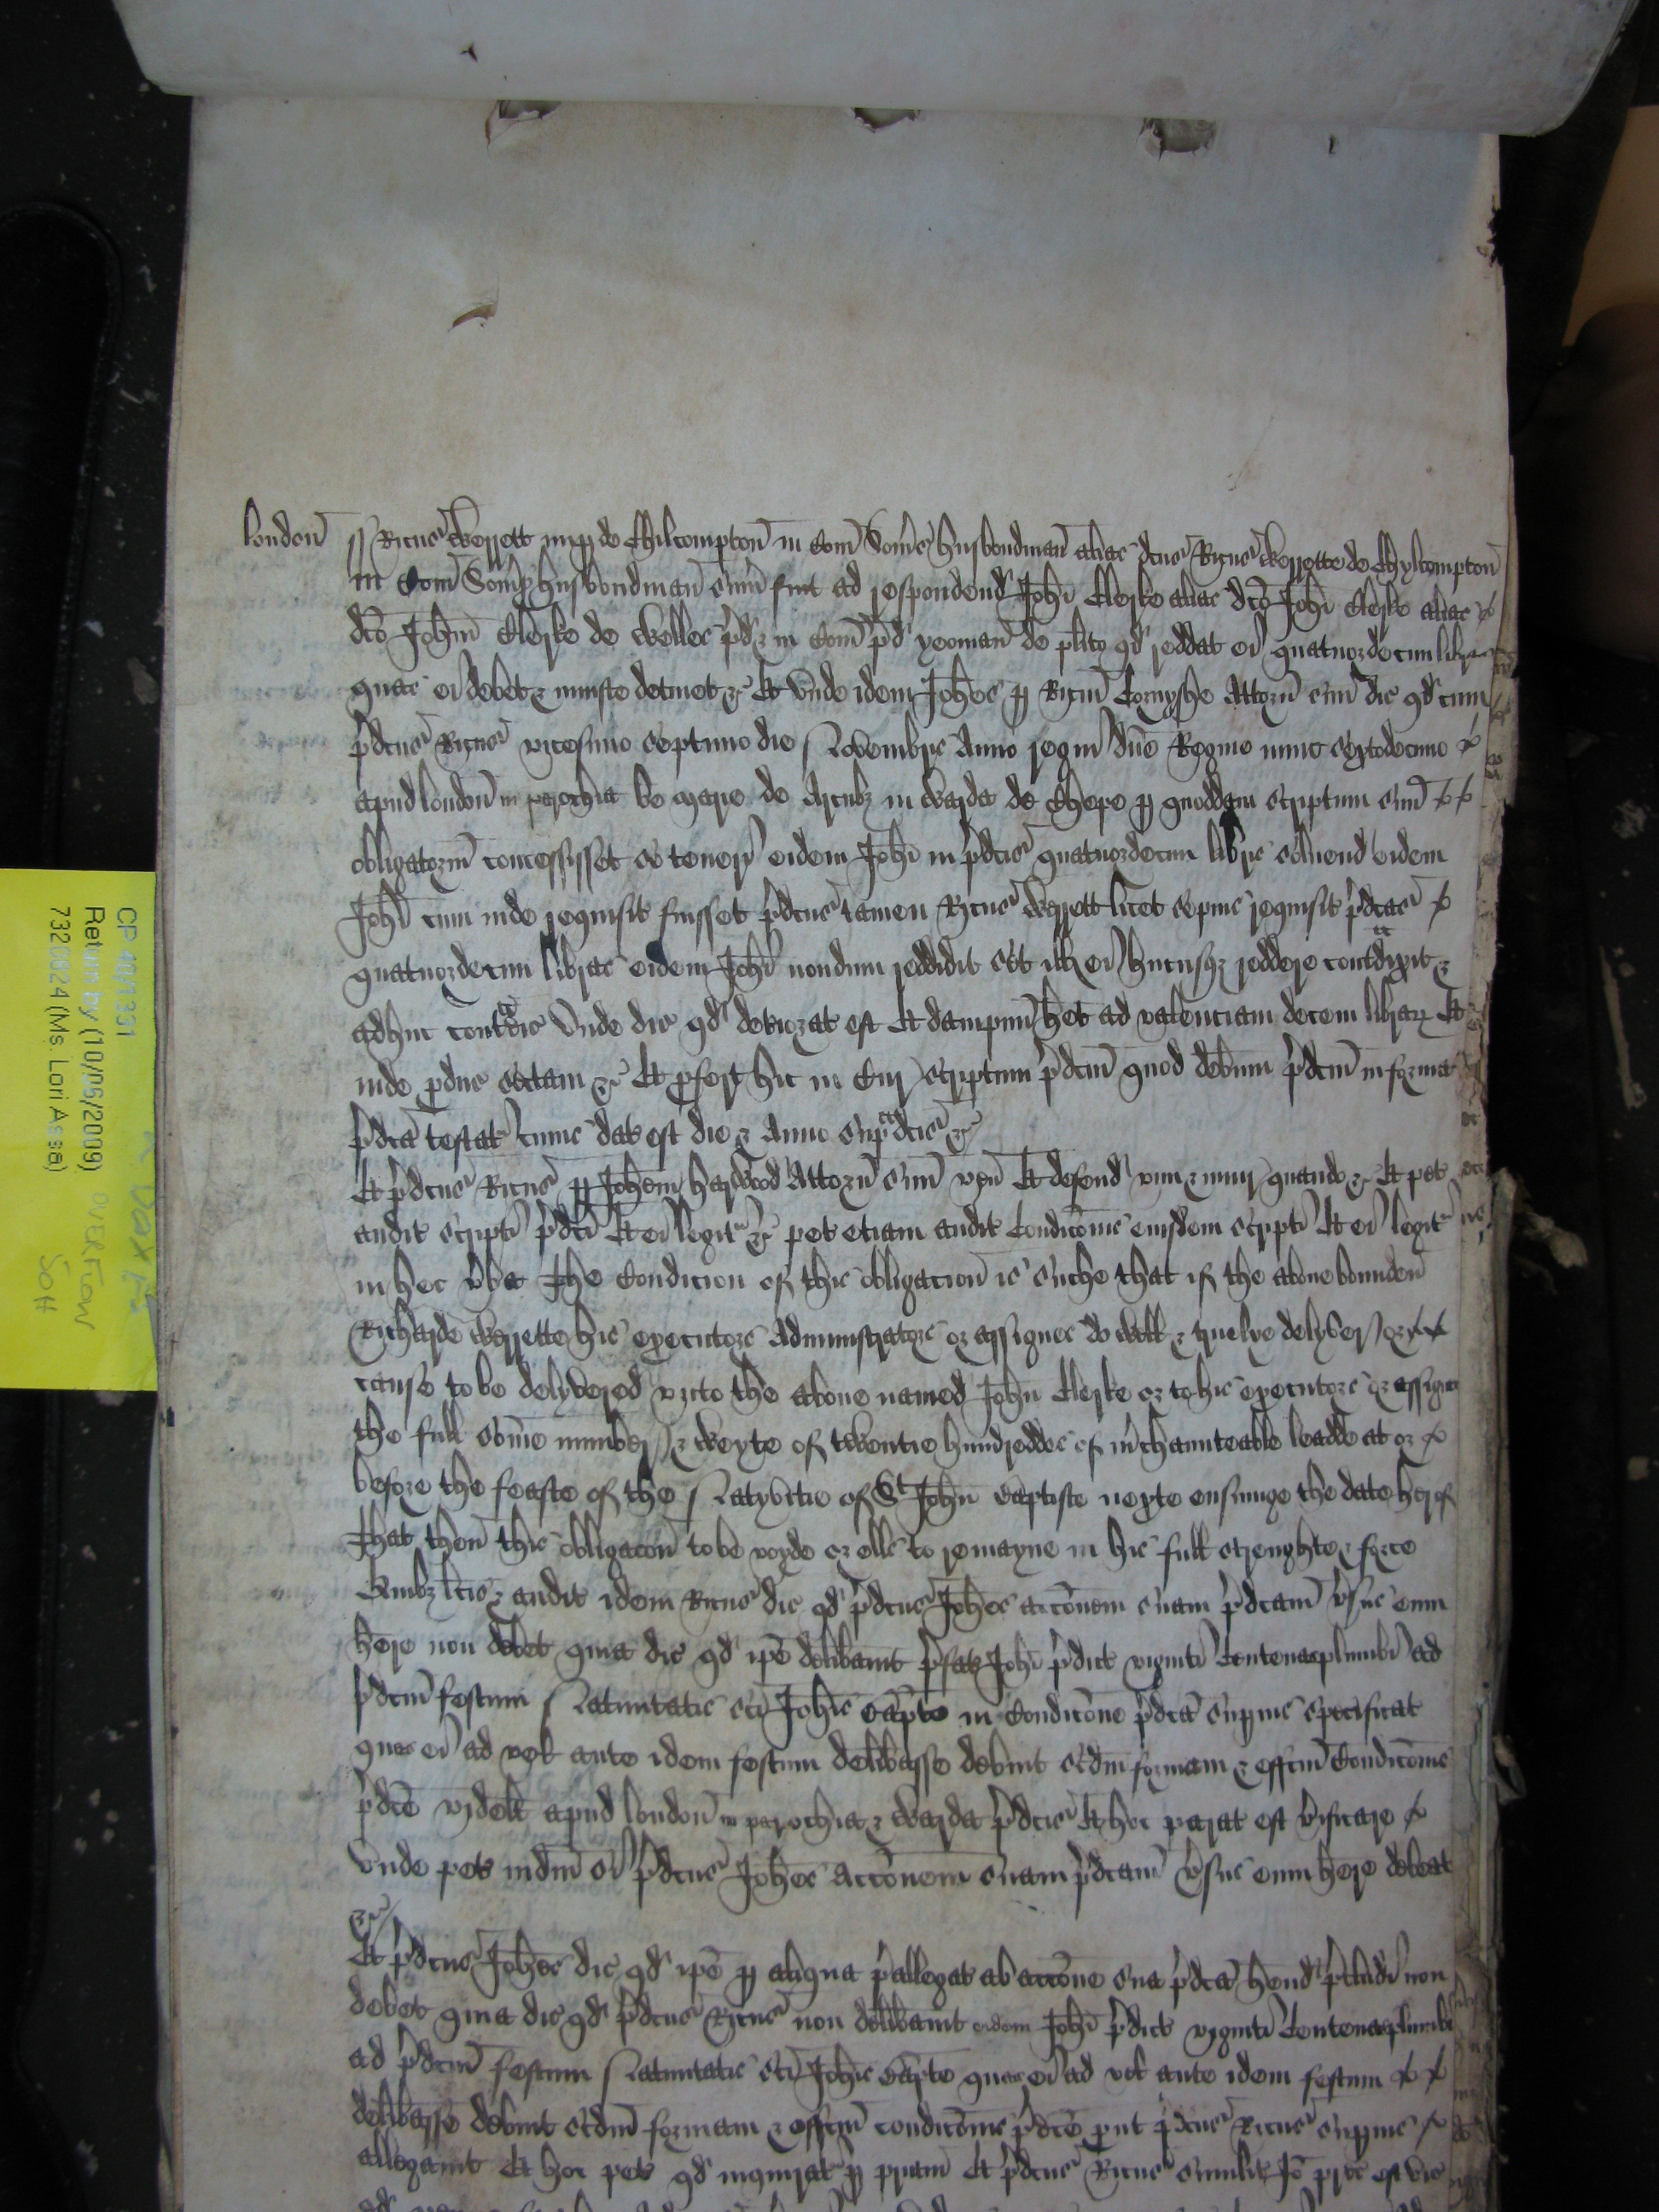 london ss Ricus Werrett nup de Chilcompton in Com Soms husbondman alias dcus Ricus Werrette de Chylcompton
in Com Somp husbondman sum fuit ad respondend Johi Clerke alias dco Johi Clerke alias
dco Johm Clerke de Welles pd z in Com pd yeoman de plito qd reddat ei quatuordecim libr
quas ei debet z iniuste detinet zc Et Unde idem Johes p Ricm Cornyshe Attorn suu dic qd cum
pdcus Ricus vicesimo septimo die Novembris Anno regni dne Regine nunc septodecimo
apud london in parochia be Marie de Arcubz in Warda de Chepe p quoddam scriptum suu
obligatorm concessisset se teneri eidem Johi in pdcis quatuordecim libris soluend eidem
Johi cum inde requisit fuisset pdcus tamen Ricus Werrett licet sepius requisit pdcas
quatuordecim libras eidem Johi nondum reddidit set ill ei hucusqz reddere contradixit z
adhuc contradic Unde dic qd deteriorat est Et dampnu het ad valenciam decem librar Et
inde pduc sectam zc Et pfert hic in Cur scriptum pdcm quod debitum pdcm in forma
pdca testat cuius dat est die z Anno supradcis zc
Et pdcus Ricus p Johem Harwood Attorn suu ven Et defend vim z iniur quando zc Et pet
audit scripti pdci Et ei legit zc pet etiam audit Condicois eiusdem scripti Et ei legit
in hec vba The Condicion of this obligacion is suche that if the above bounden
Richarde Werrette his executors Administrators or assignes do well z truelye delyver or
cause to be delyvered vnto the above named John Clerke or to his executors or assignes
the full some nomber z weyte of twentie hundreddes of mchaunteable leadde at or
before the feaste of the Natyvitie of St John Baptiste nexte ensuinge the date herof
That then this obligacon to be voyde or ells to remayne in his full strenghte z force
Quibz lcis z audit idem Ricus dic qd pdcus Johes accionem suam pdcam vsus eum
here non debet quia dic qd ipe delibauit pfat Johi pdict viginti Centenas plumbi ad
pdcm festum Natiuitatis sci Johis Bapte in Condicione pdca supius specificat
quas ei ad vel ante idem festum delibasse debuit scdm formam z effcm Condicois
pdce videlt apud london in parochia z Warda pdcis Et hoc parat est verificare
Unde pet iudm si pdcus Johes Accionem suam pdcam vsus eum here debeat
zc
Et pdcus Johes dic qd ipe p aliqua pallegat ab accione sua pdca hend pcludi non
debet quia dic qd pdcus Ricus non delibauit eidem Johi pdict viginti Centenas plumbi
ad pdcm festum Natiuitatis sci Johis Bapte quas ei ad vel ante idem festum
delibasse debuit scdm formam z effcm condicois pdce put pdcus Ricus supius
allegauit Et hoc pet qd inquirat p priam Et pdcus Ricus similit Io prec est vic
CP 40/1331
Return by (10/06/2009)
7320824 (Ms. Lori Assa)
OVERFLOW